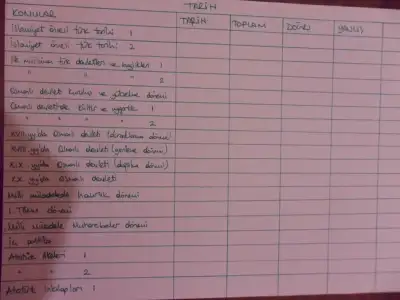 TARİH
KONULAR TARİH TOPLAM DOĞRU YANLIŞ
İslamiyet öncesi türk tarihi 1
İslamiyet öncesi türk tarihi 2
İlk müslüman türk devletleri ve beylikleri 1
" " " 2
Osmanlı devleti kuruluş ve yükselme dönemi
Osmanlı devletinde kültür ve uygarlık 1
" " " " 2
XVII.yy.da Osmanlı devleti (duraklama dönemi)
XVIII.yy.da Osmanlı devleti (gerileme dönemi)
XIX. yy.da Osmanlı devleti (dağılma dönemi)
XX. yy.da Osmanlı devleti
Milli mücadelede hazırlık dönemi
I. TBMM dönemi
Milli Mücadele Muharebeler dönemi
İç politika
Atatürk ilkeleri 1
" " 2
Atatürk inkılapları 1